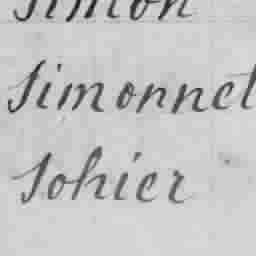 Simon
Simonnet
Sohier